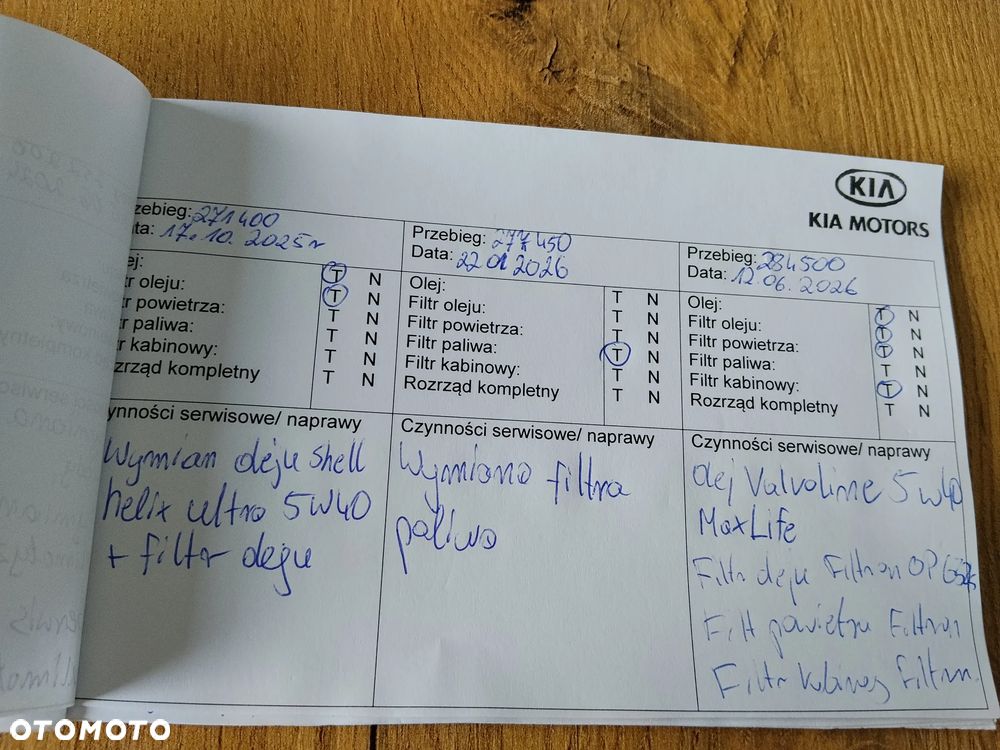 KIA
KIA MOTORS
rzebieg: 271400
ta: 17.10.2025r
ej:
tr oleju: T N
tr powietrza: T N
tr paliwa: T N
tr kabinowy: T N
ozrząd kompletny T N
ynności serwisowe/ naprawy
Wymian oleju shell
helix ultra 5W40
+ filtr oleju
Przebieg: 277450
Data: 22 01 2026
Olej: T N
Filtr oleju: T N
Filtr powietrza: T N
Filtr paliwa: T N
Filtr kabinowy: T N
Rozrząd kompletny T N
Czynności serwisowe/ naprawy
Wymiana filtra
paliwa
Przebieg: 284500
Data: 12.06.2026
Olej: T N
Filtr oleju: T N
Filtr powietrza: T N
Filtr paliwa: T N
Filtr kabinowy: T N
Rozrząd kompletny T N
Czynności serwisowe/ naprawy
olej Valvoline 5w40
MaxLife
Filtr oleju Filtron OP
Filt powietrza Filtron
Filtr Filtron
OTOMOTO